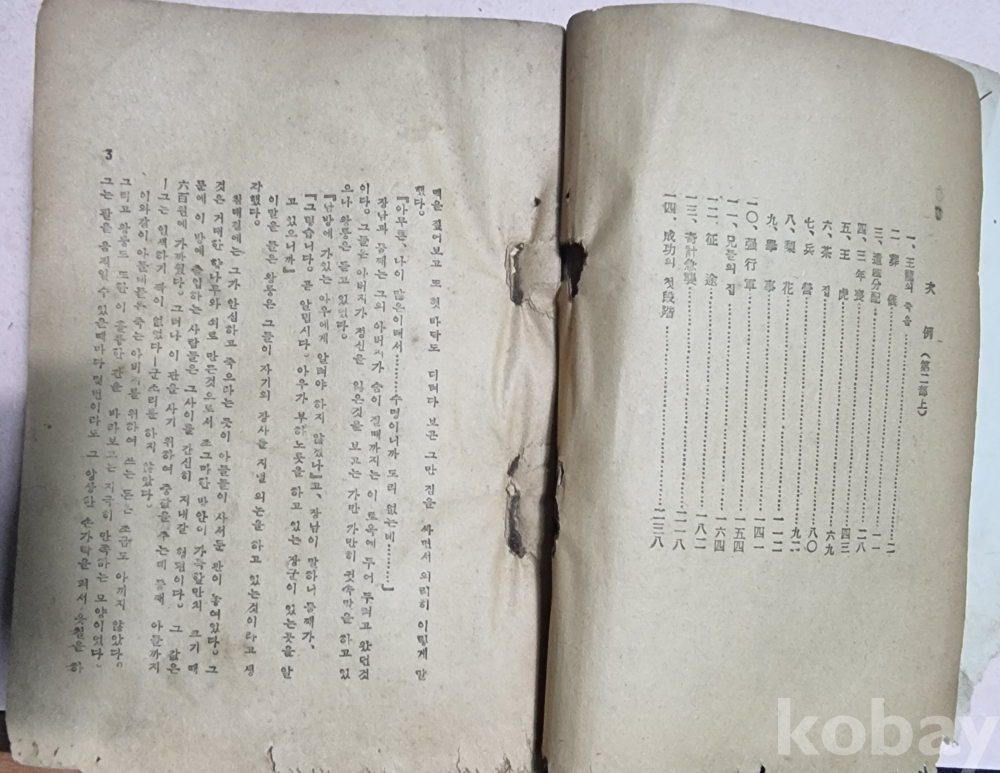 次 例 (第二部上)
一. 王龍의 죽음……二
二. 葬 儀……一一
三. 遺產分配……二八
四. 三年喪……四三
五. 王 虎……六九
六. 茶 집……八〇
七. 兵 營……九二
八. 梨 花……一一二
九. 擧 事……一四一
一〇. 强行軍……一五四
一一. 兄들의집……一六四
一二. 征 途……一八二
一三. 奇計急襲……二一八
一四. 成功의 첫段階……二三八
맥은 짚어보고 또 헛바닥도 디려다 보곤 그만 짐을 싸면서 의뢰히 이렇게 말
했다.
『아무튼, 나이 많은이래서………수명이니까 도리 없는데………』
장남과 둘째는 그의 아버지가 숨이 질때까지는 이 토옥에 두어 두려고 왔던것
이다. 그들은 아버지가 정신을 잃은것을 보고는 가만 가만히 귓속막을 하고 있
으나 왕룽은 듣고 있었다.
『남방에 가있는 아우에게 알려야 하지 않겠나』고, 장남이 말하니 둘째가,
『그렇습니다. 곧 알립시다. 아우가 부하노릇을 하고 있는 장군이 있는곳을 알
고 있으니까』
이말을 들은 왕룽은 그들이 자기의 장사를 지낼 의논을 하고 있는것이라고 생
각했다.
침대곁에는 그가 안심하고 죽으라는 뜻이 아들들이 사서둔 관이 놓여있다. 그
것은 거대한 향나무와 쇠로 만든것으로서 조그마한 방안이 가득할만치 크기 때
문에 이 방에 출입하는 사람들은 그사이를 간신히 지내갈 형편이다. 그 값은
六百원에 가까웠다. 그러나 이 관을 사기 위하여 충당을 주는데 둘째 아들까지
―그는 인색하기 짝이 없었다―군소리를 하지 않았다.
이와같이 아들애들은 죽는 아비를 위하여 쓰는 돈은 조금도 아끼지 않았다.
그리고 왕룽도 또한 이 훌륭한 관을 바라보고는 지극히 만족하는 모양이었다.
그는 팔을 움직일수 있을때마다 몇번이라도 그 앙상한 손가락을 펴서 옷칠을 하
3
kobay